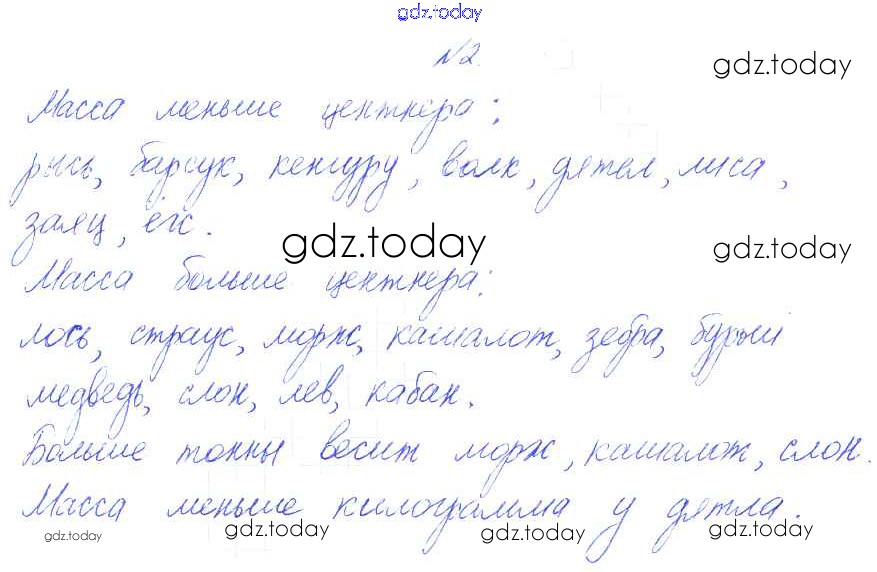 gdz.today
№2.
gdz.today
Масса меньше центнера:
рысь, барсук, кенгуру, волк, дятел, лиса,
заяц, ёж.
gdz.today
gdz.today
Масса больше центнера:
лось, страус, морж, кашалот, зебра, бурый
медведь, слон, лев, кабан.
Больше тонны весит морж, кашалот, слон.
Масса меньше килограмма у дятла.
gdz.today
gdz.today
gdz.today
gdz.today